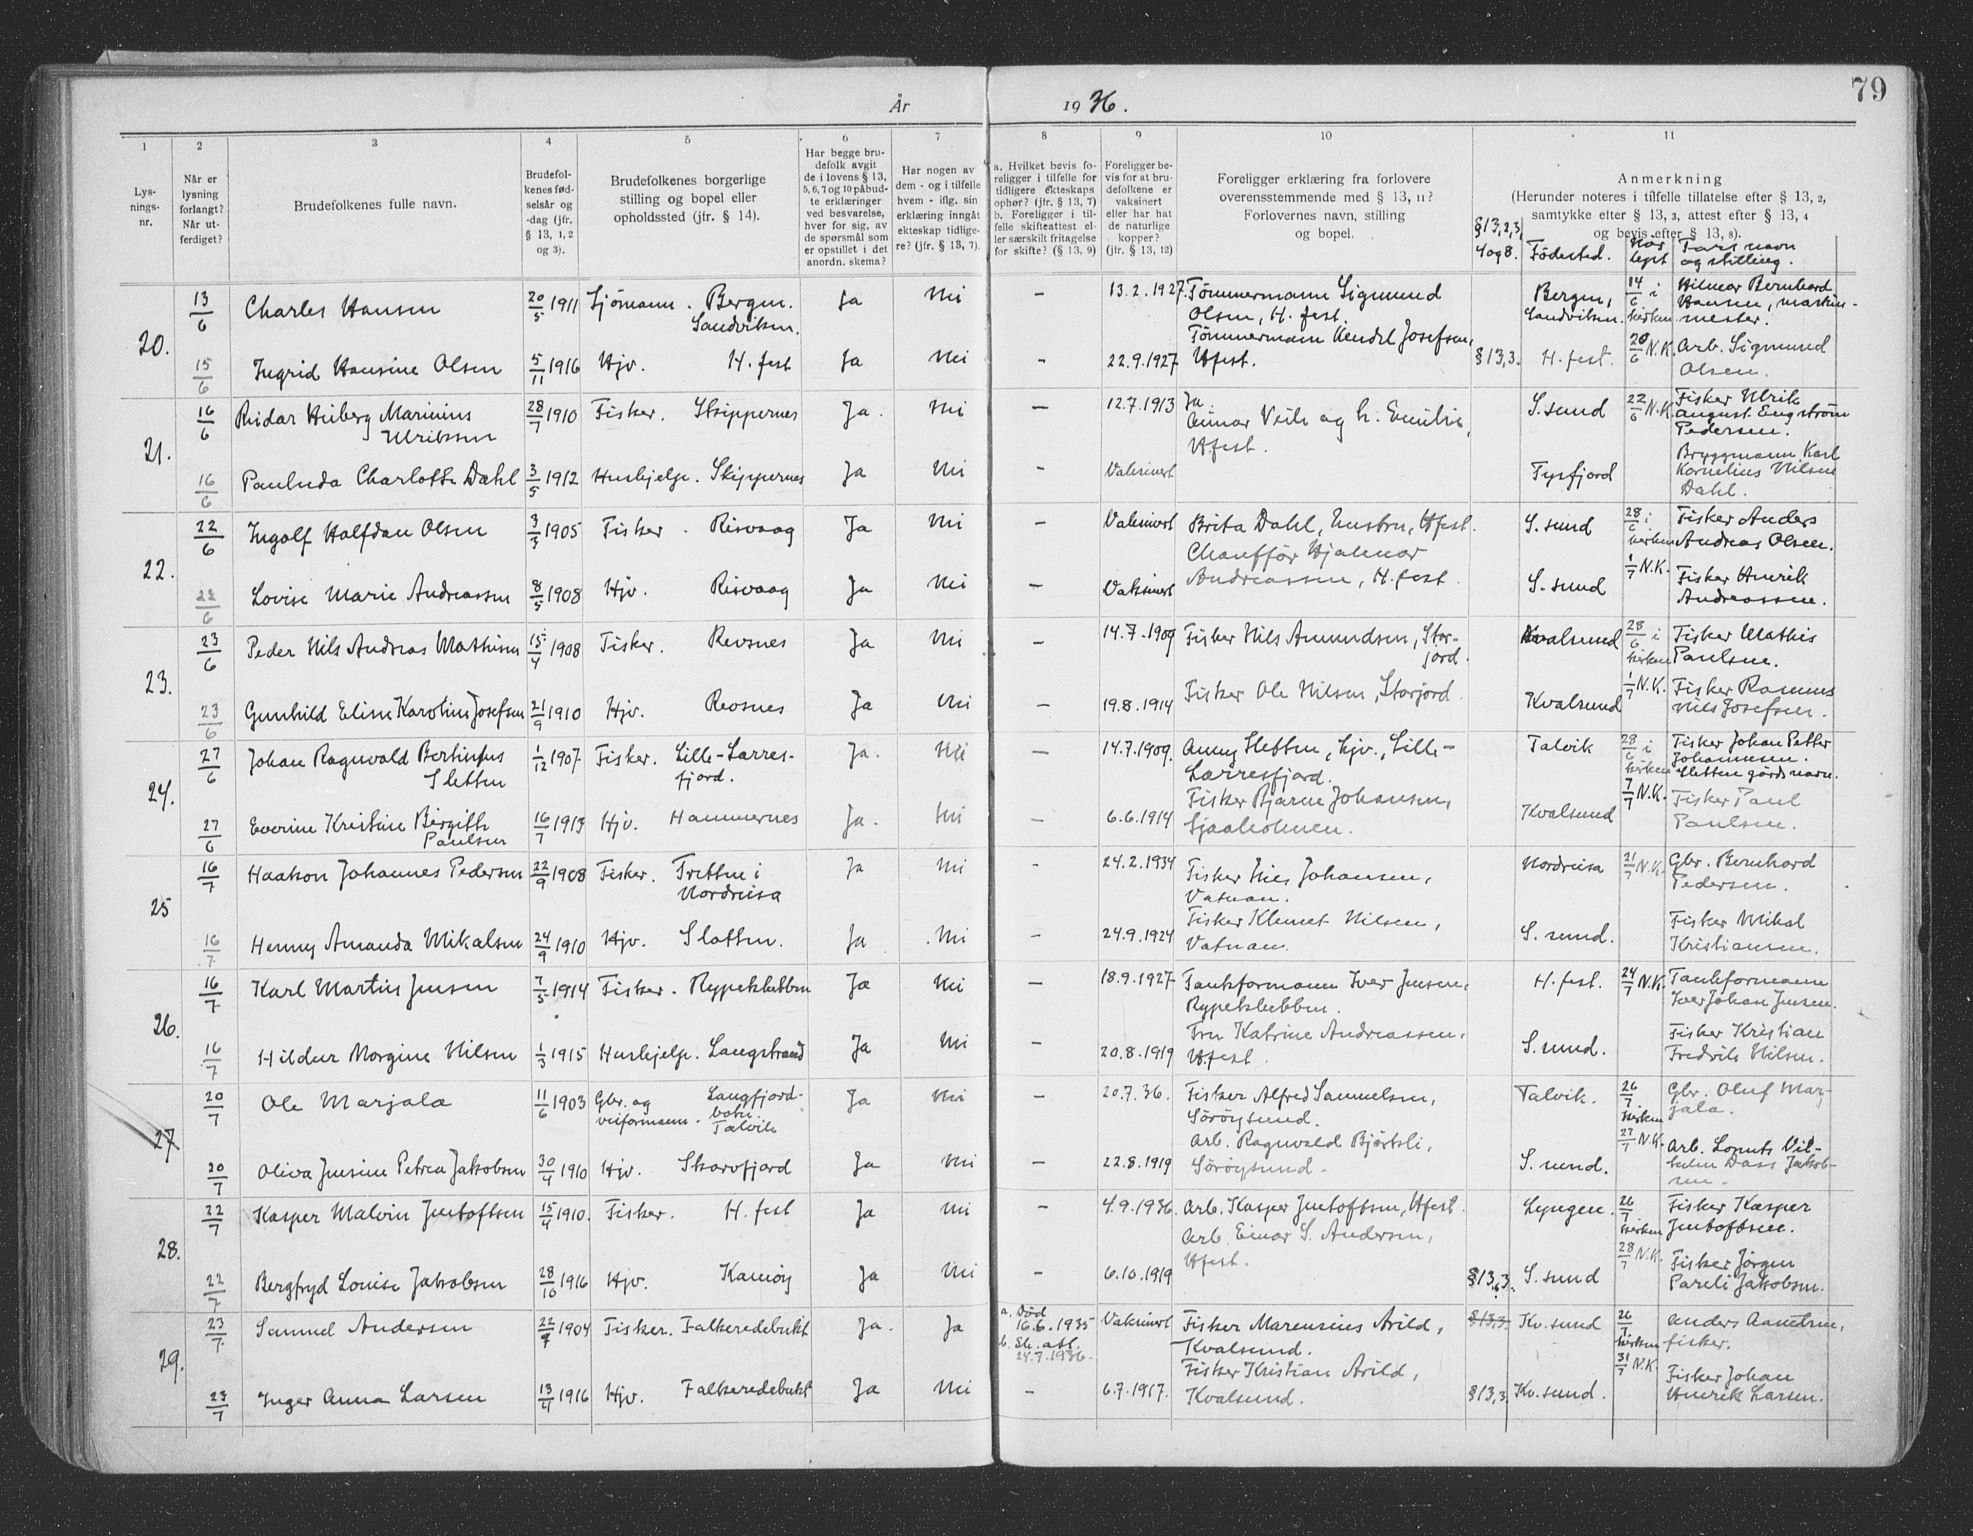 79
År 1936.
1 2 3 4 5 6 7 8 9 10 11
Lys-
nings-
nr.
Når er
lysning
forlangt?
Når ut-
ferdiget?
Brudefolkenes fulle navn.
Brudefol-
kenes fød-
selsår og
-dag (jfr.
§ 13, 1, 2
og 3).
Brudefolkenes borgerlige
stilling og bopel eller
opholdssted (jfr. § 14).
Har begge bru-
defolk avgit
de i lovens § 13,
5, 6, 7 og 10 påbud-
te erklæringer
ved besvarelse,
hver for sig, av
de spørsmål som
er opstillet i det
anordn. skema?
Har nogen av
dem - og i tilfelle
hvem - iflg. sin
erklæring inngått
ekteskap tidlige-
re? (jfr. § 13, 7).
a. Hvilket bevis fo-
religger i tilfelle for
tidligere ekteskaps
ophør? (jfr. § 13, 7)
b. Foreligger i til-
felle skifteattest el-
ler særskilt fritagelse
for skifte? (§ 13, 9)
Foreligger be-
vis for at bru-
defolkene er
vaksinert
eller har hat
de naturlige
kopper?
(jfr. § 13, 12)
Foreligger erklæring fra forlovere
overensstemmende med § 13, 11?
Forlovernes navn, stilling
og bopel.
Anmerkning
(Herunder noteres i tilfelle tillatelse efter § 13, 2,
samtykke efter § 13, 3, attest efter § 13, 4
og bevis efter § 13, 8).
§13,2,3,
4og8. Fødested. Når lyst Fars navn
og stilling.
20.
13/6 Charles Hansen 20/5 1911 Sjømann. Bergen. Ja Nei – 13.2.1927. Tømmermann Sigmund Bergen, 14/6 i Hilmar Bernhard
Sandviken. Olsen, H.fest. Sandviken. kirken Hansen, maskin-
mester.
Tømmermann Hendel Josefsen,
15/6 Ingrid Hansine Olsen 5/11 1916 Hjv. H.fest Ja Nei – 22.9.1927 Hfest. §13,3. H.fest. 20/6 N.K. Arb. Sigmund
Olsen.
21.
16/6 Reidar Heiberg Marinius 28/7 1910 Fisker. Skippernes Ja. Nei – 12.7.1913 Ja. S.sund 22/6 N.K. Fisker Ulrik
Ulriksen Einar Veile og h. Emilie, August Engstrøm
Hfest. Pedersen.
16/6 Paulnda Charlotte Dahl 3/5 1912 Hushjelp. Skippernes Ja Nei – Vaksinert Tysfjord Bryggmann Karl
Kornelius Nilsen
Dahl.
22.
22/6 Ingolf Halfdan Olsen 3/3 1905 Fisker. Risvaag Ja Nei – Vaksinert Brita Dahl, hustru, Hfest. S.sund 28/6 i Fisker Anders
Chauffør Hjalmar kirken Andreas Olsen.
22/6 Lovise Marie Andreassen 8/5 1908 Hjv. Risvaag Ja Nei – Vaksinert Andreassen, H.fest. S.sund 1/7 N.K. Fisker Henrik
Andreassen.
23.
23/6 Peder Nils Andreas Mathisen 15/4 1908 Fisker. Revsnes Ja Nei – 14.7.1909 Fisker Nils Amundsen, Stor- Kvalsund 28/6 i Fisker Mathis
jord. kirken Paulsen.
23/6 Gunhild Eline Karoline Josefsen 21/9 1910 Hjv. Revsnes Ja Nei – 19.8.1914 Fisker Ole Nilsen, Storjord. Kvalsund 1/7 N.K. Fisker Rasmus
Nils Josefsen.
24.
27/6 Johan Ragnvald Bertinfus 1/12 1907 Fisker. Lille-Lærres- Ja. Nei 14.7.1909. Anny Sletten, hjv., Lille- Talvik 28/6 i Fisker Johan Petter
Sletten fjord. Lærresfjord. kirken Johannesen.
Sletten gårdsnavn.
27/6 Everine Kristine Birgitte 16/7 1913 Hjv. Hammernes Ja. Nei – 6.6.1914 Fisker Bjarne Johansen, Kvalsund 7/7 N.K. Fisker Paul
Paulsen Sjaaholmen. Paulsen.
25
16/7 Haakon Johannes Pedersen 22/9 1908 Fisker. Tretten i Ja Nei – 24.2.1934 Fisker Nies Johansen, Nordreisa 21/7 N.K. Gbr. Bernhard
Nordreisa Vatnan. Pedersen.
16/7 Henny Amanda Mikalsen 24/9 1910 Hjv. Slotten. Ja Nei – 24.9.1924 Fisker Klemet Nilsen, S.sund. Fisker Mikal
Vatnan. Kristiansen.
26.
16/7 Karl Martin Jensen 7/5 1914 Fisker. Rypeklubben Ja Nei – 18.9.1927 Tankformann Iver Jensen, H.fest. 24/7 N.K. Tankformann
Rypeklubben. Iver Johan Jensen.
16/7 Hildur Morgine Nilsen 1/3 1915 Hushjelp. Langstrand Ja Nei – 20.8.1919 Fru Katrine Andreassen, S.sund. Fisker Kristian
Hfest. Fredrik Nilsen.
27
20/7 Ole Marjala 11/6 1903 Gbr. og Langfjord- Ja Nei – 20.7.36. Fisker Alfred Samuelsen, Talvik. 26/7 Gbr. Oluf Mar-
veiformann. botn. Talvik Sørøysund. kirken jala.
20/7 Oliva Jensine Petrea Jakobsen 30/4 1910 Hjv. Skarvfjord Ja Nei – 22.8.1919 Arb. Ragnvald Bjørkli, S.sund. 27/7 N.K. Arb. Vil-
Sørøysund. helm Dass Jakob-
sen.
28.
22/7 Kasper Malvin Jentoftsen 15/4 1910. Fisker. H.fest Ja Nei – 4.9.1936 Arb. Kasper Jentoftsen, Hfest. Lyngen. 26/7 Fisker Kasper
Arb. Einar S. Andersen, kirken Jentoftsen.
22/7 Bergfryd Louise Jakobsen 28/10 1916 Hjv. Kamøy Ja Nei – 6.10.1919 Hfest. §13,3. S.sund 28/7 N.K. Fisker Jørgen
Pareli Jakobsen.
29.
23/7 Samuel Andersen 22/9 1904 Fisker. Falkeredebukt Ja. Ja a. Død Vaksinert Fisker Marensius Arild, §13,3. Kv.sund 26/7 Anders Aanetsen,
16.6.1935 Kvalsund. kirken fisker.
b. Sk.att.
24.7.1936.
23/7 Inger Anna Larsen 13/4 1916 Hjv. Falkeredebukt Ja Nei – 6.7.1917. Fisker Kristian Arild, §13,3 Kv.sund. 31/7 N.K. Fisker Johan
Kvalsund. Henrik Larsen.